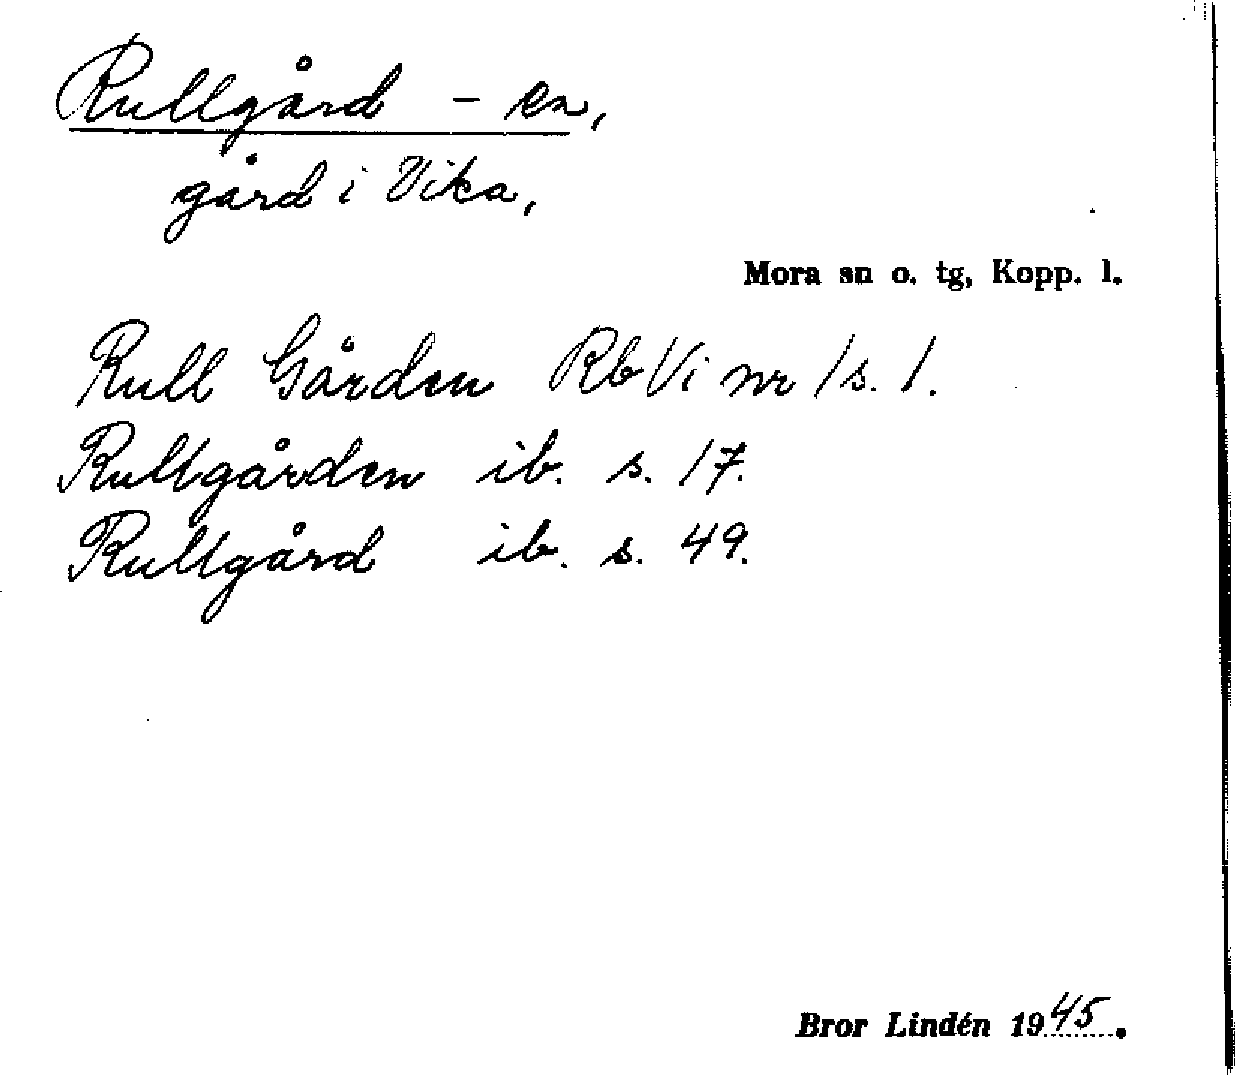 Rullgård – en,
gård i Vika,
Mora sn o. tg, Kopp. l.
Rull Gården Rb Vi nr 1 s. 1.
Rullgården ib. s. 17.
Rullgård ib. s. 49.
Bror Lindén 1945.